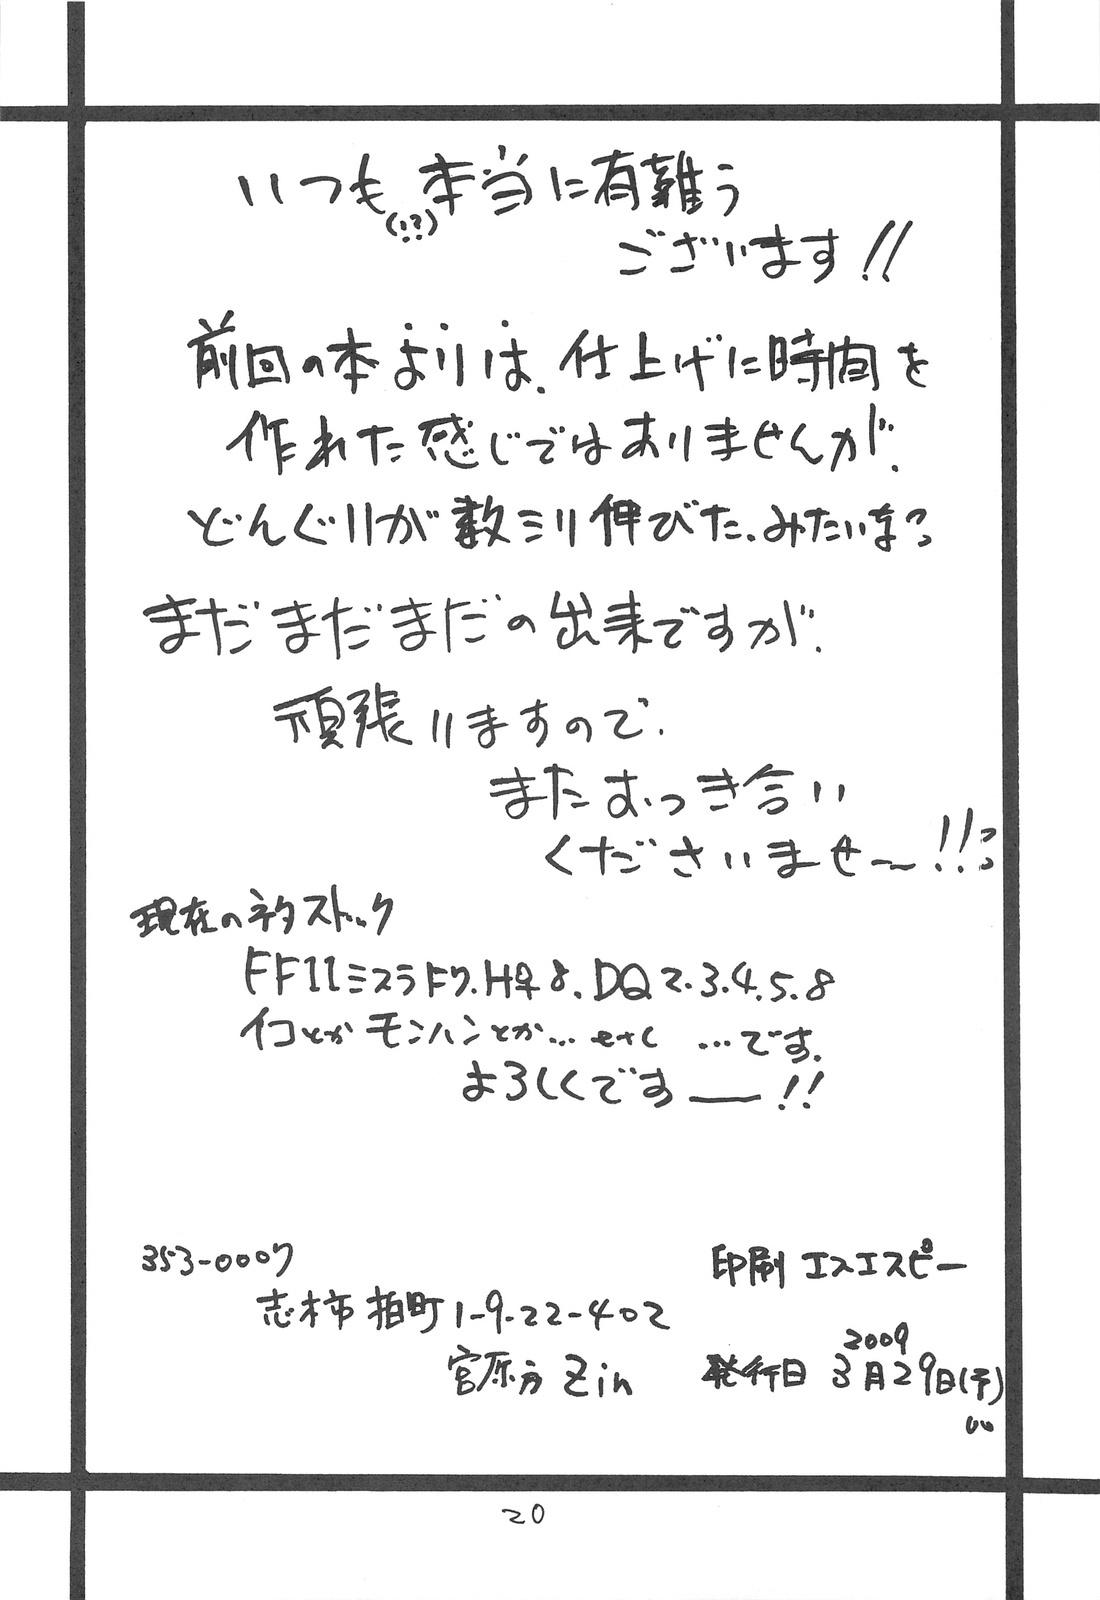 いつも(!?)本当に有難う
ございます!!
前回の本よりは、仕上げに時間を
作れた感じではありませんが、
どんぐりが数ミリ伸びた、みたいな?
まだまだまだの出来ですが、
頑張りますので、
またおつき合い
くださいませ〜!!
現在のネタストック
FF11ミスラ ドワ、H♀8、DQ2.3.4.5.8
イコとか モンハンとか…etc …です。
よろしくです——!!
353-0007
志木市 柏町1-9-22-402
宮原方 Zin
印刷 エスエスピー
発行日 2009 3月29日(予)
20